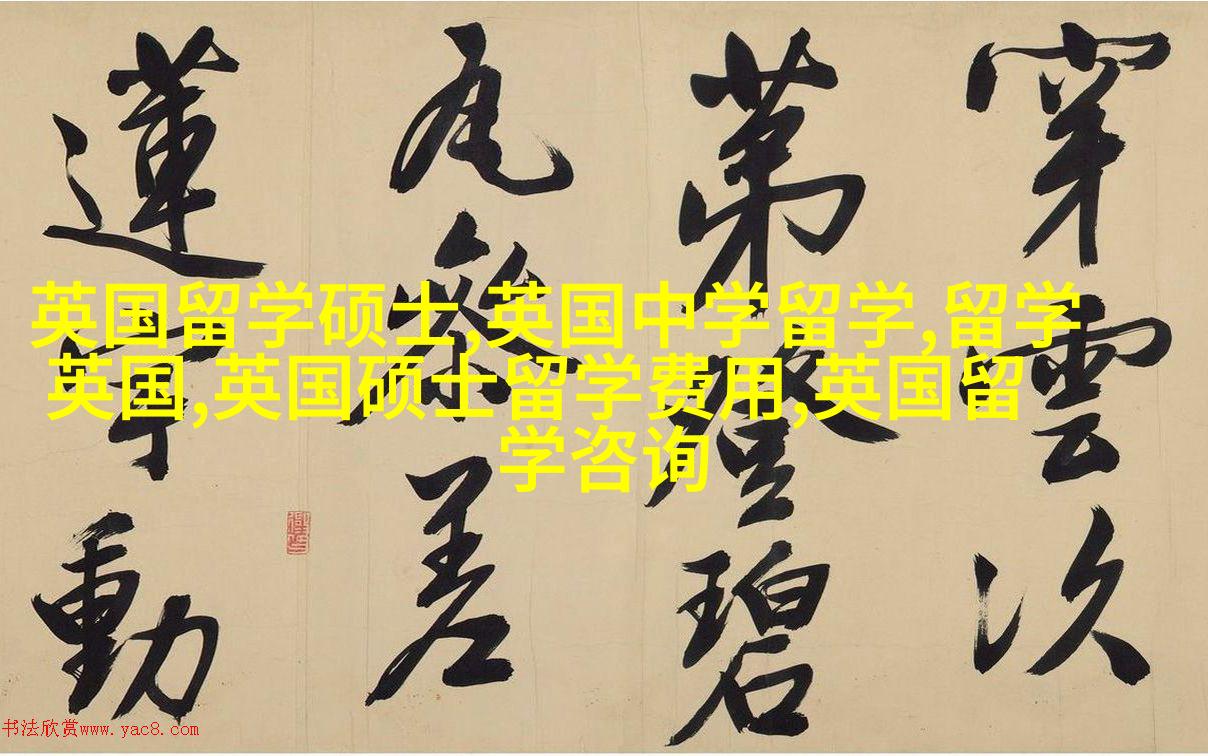 穿雲次
第登碧
瓦參差
蓮宇動
英国留学硕士,英国中学留学,留学
英国,英国硕士留学费用,英国留
学咨询
书法欣赏www.yac8.com